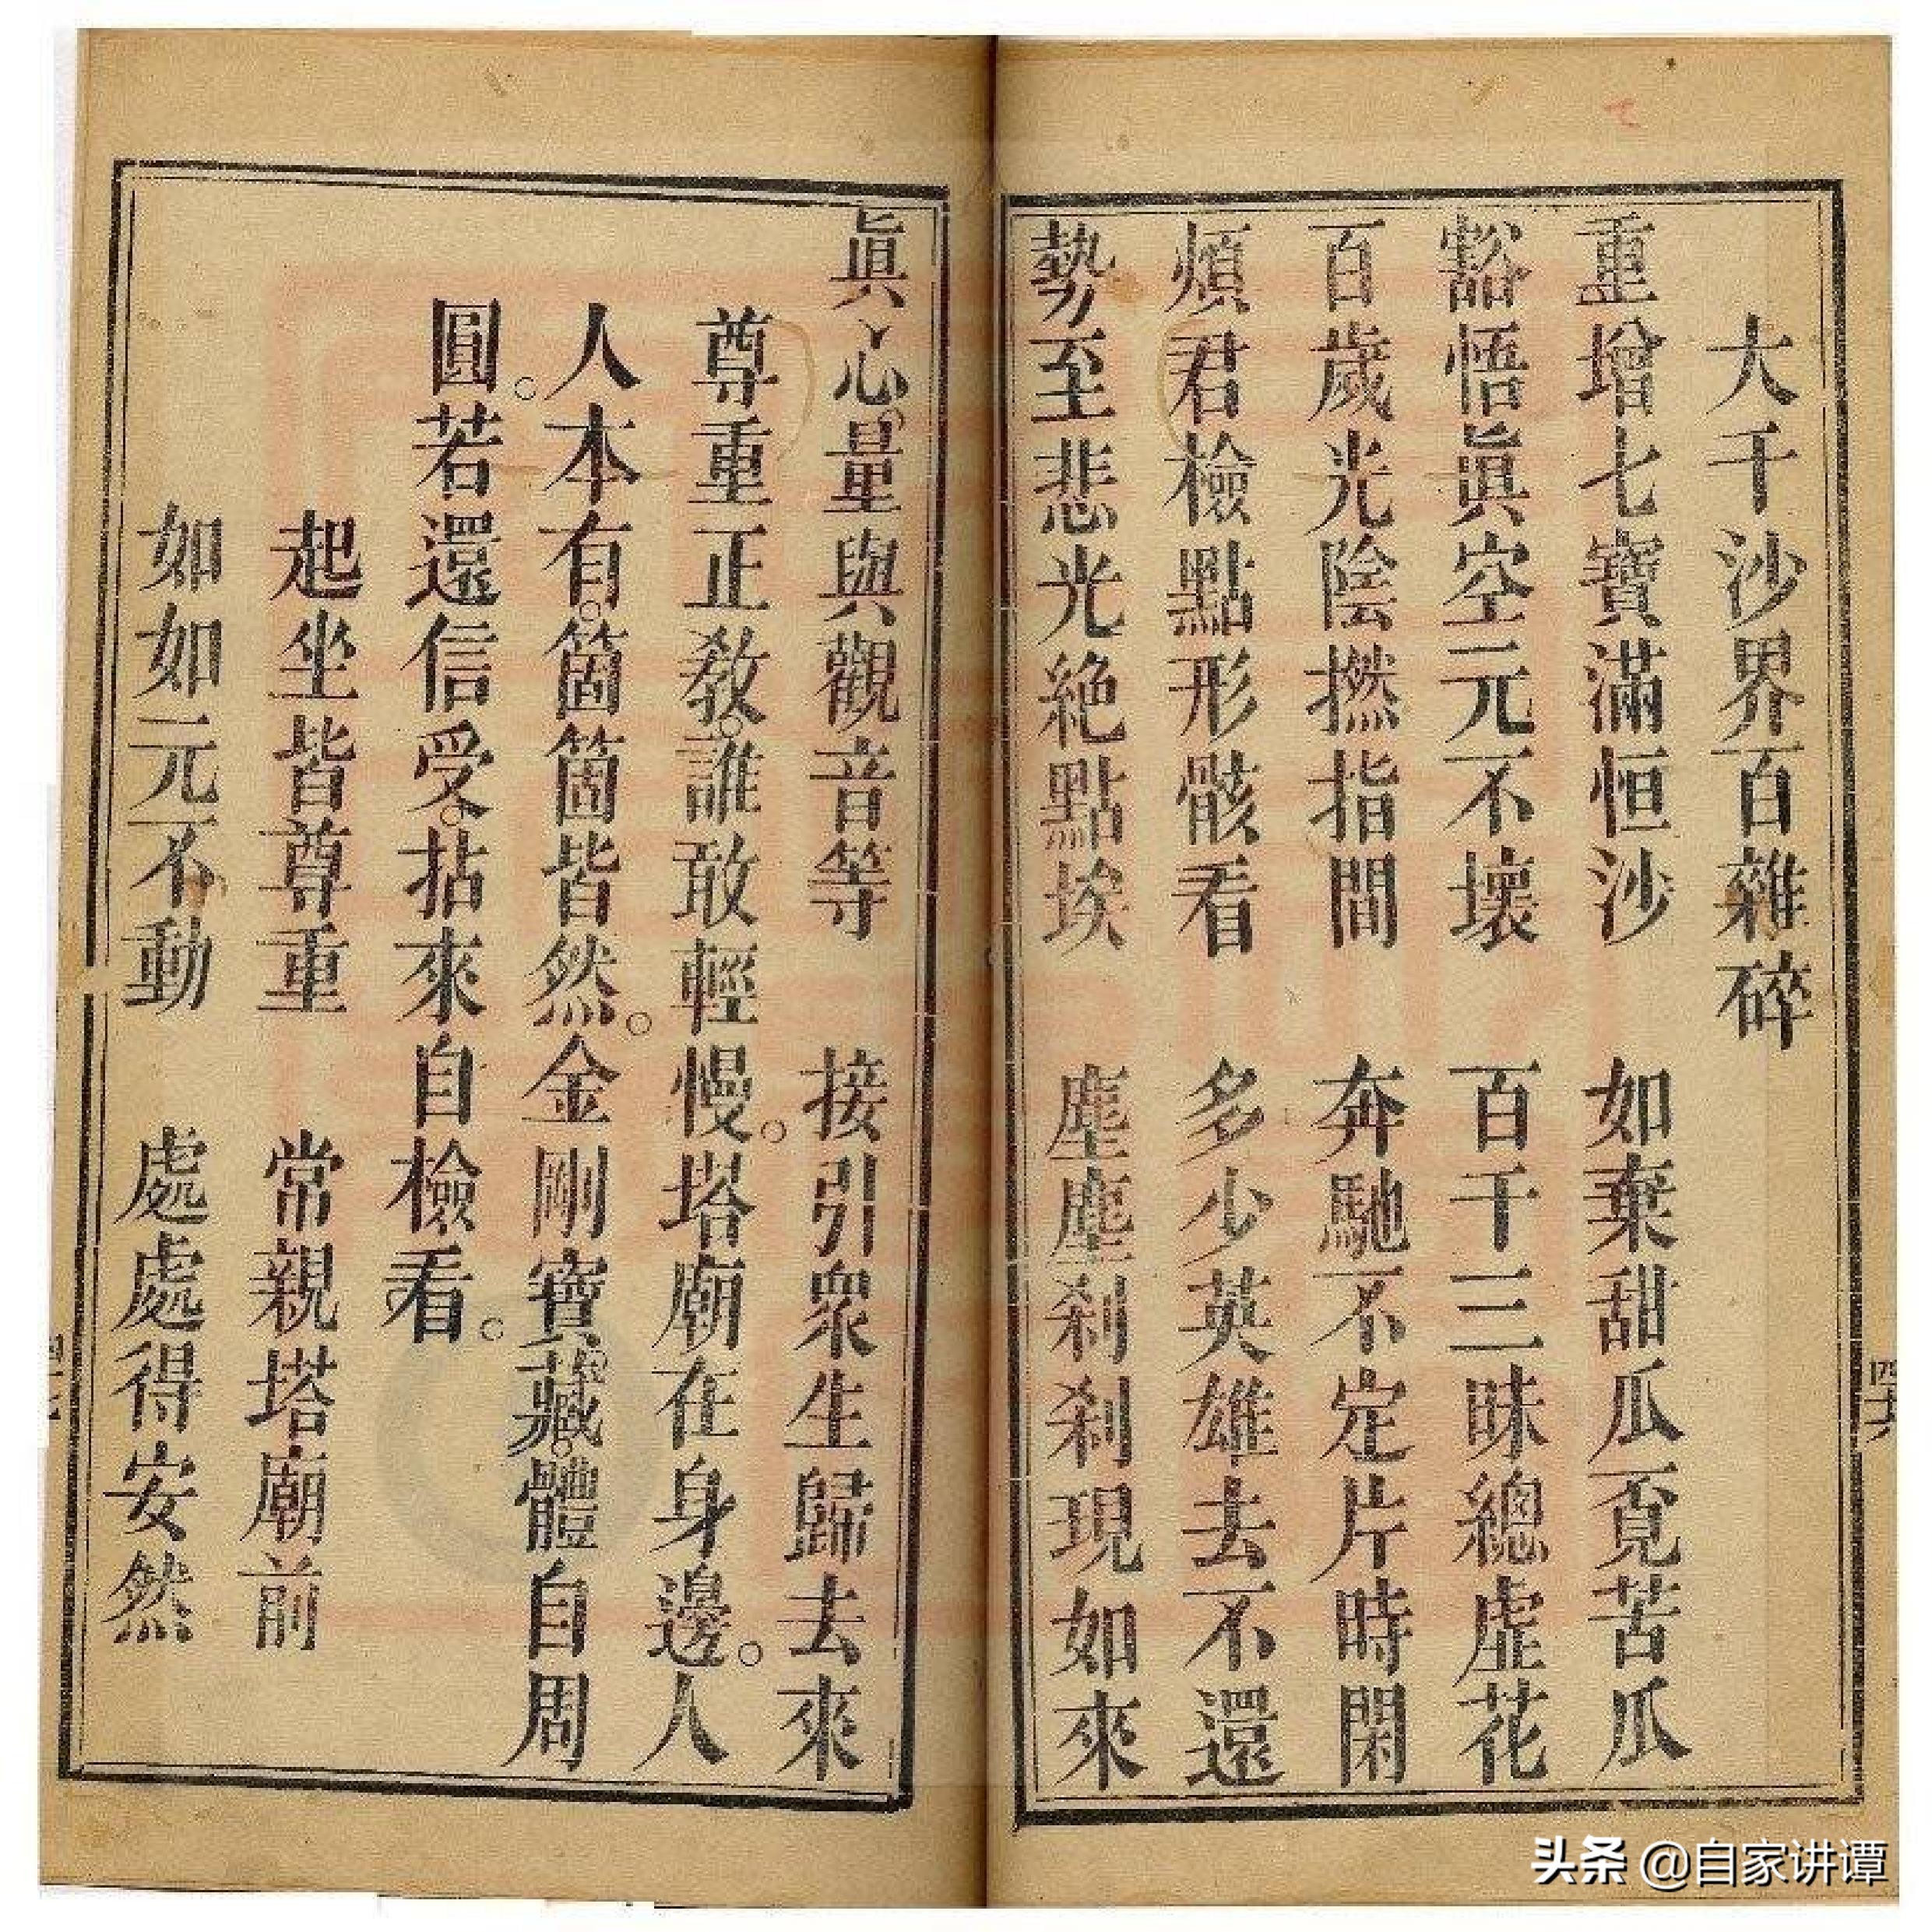 大千沙界百雜碎
重增七寶滿恒沙　如棄甜瓜覓苦瓜
豁悟眞空元不壞　百千三昧總虛花
百歲光陰撚指間　奔馳不定片時閑
煩君檢點形骸看　多少英雄去不還
勢至悲光絶點埃　塵塵刹刹現如來
眞心量與觀音等　接引衆生歸去來
尊重正教。誰敢輕慢。塔廟在身邊。人
人本有。箇箇皆然。金剛寶藏。體自周
圓。若還信受。拈來自檢看。
起坐皆尊重　常親塔廟前
如如元不動　處處得安然
四六
头条 @自家讲谭